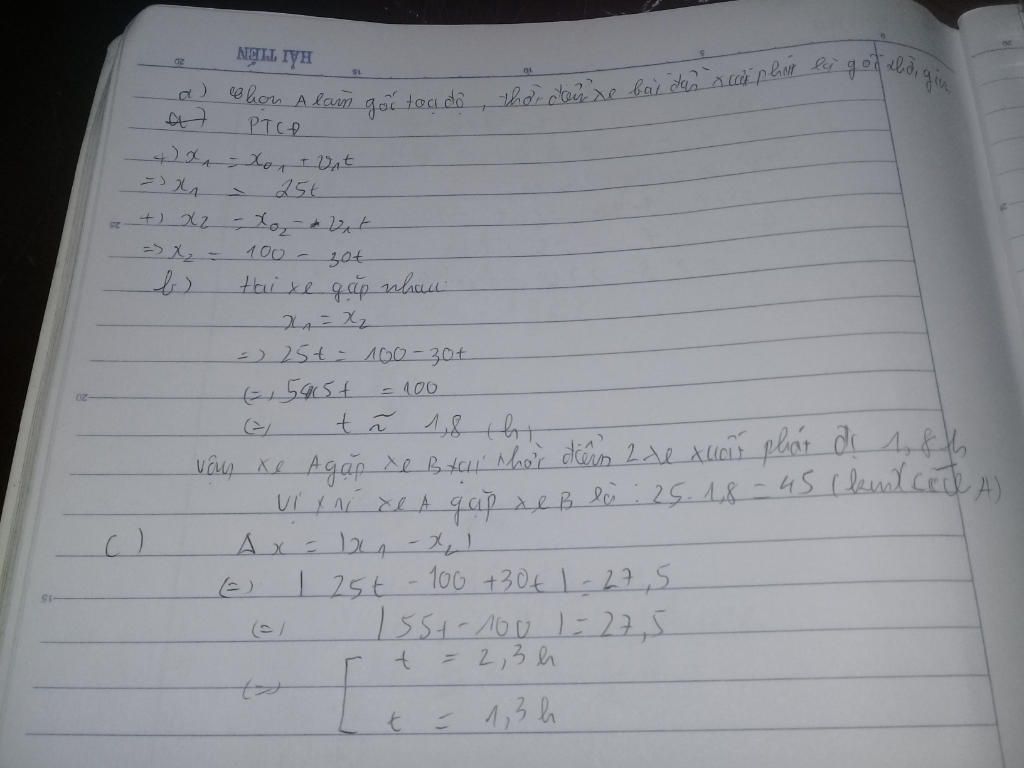 HẢI TIẾN
a) Chọn A làm gốc toạ độ, thời điểm xe bắt đầu xuất phát là gốc thời gian
PTCĐ
+) x₁ = x₀₁ + v₁t
=> x₁ = 25t
+) x₂ = x₀₂ - v₁t
=> x₂ = 100 - 30t
b) Hai xe gặp nhau:
x₁ = x₂
=> 25t = 100 - 30t
(=) 55t = 100
(=) t ≈ 1,8 (h)
Vậy xe A gặp xe B tại thời điểm 2 xe xuất phát đi 1,8h
Vị trí xe A gặp xe B là : 25.1,8 = 45 (km) cách A)
c) Δx = |x₁ - x₂|
(=) | 25t - 100 + 30t | = 27,5
(=) | 55t - 100 | = 27,5
(=) [ t = 2,3h
t = 1,3h